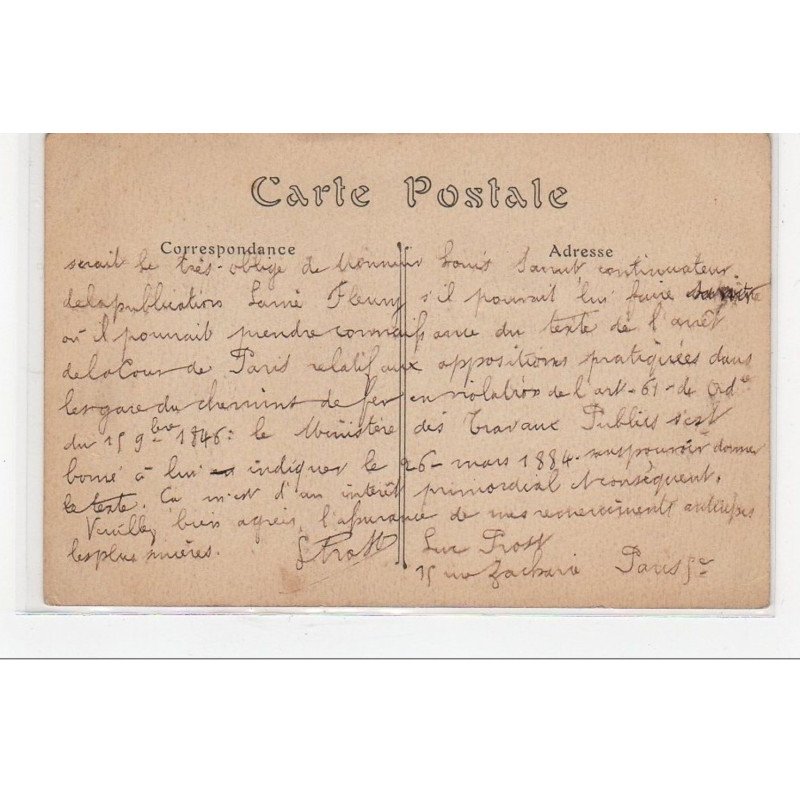 Carte Postale
Correspondance
Adresse
serait le très-obligé de Monsieur Louis Sarrut, continuateur
de la publication Lamé Fleury s'il pourrait lui faire
où il pourrait prendre connaissance du texte de l'arrêt
de la Cour de Paris relatif aux appositions pratiquées dans
les gare du chemins de fer en violation de l'art-61-de Ord.ce
du 15 9bre 1846: le Ministère des Travaux Publics s'est
borné à lui indiquer le 26-mars 1884-sans pouvoir donner
le texte. Ça m'est d'un intérêt primordial & conséquent.
Veuillez bien agréer, l'assurance de mes remerciments anticipés
les plus sincères. LProst Luc Prost
15 rue Zacharie Paris 5e